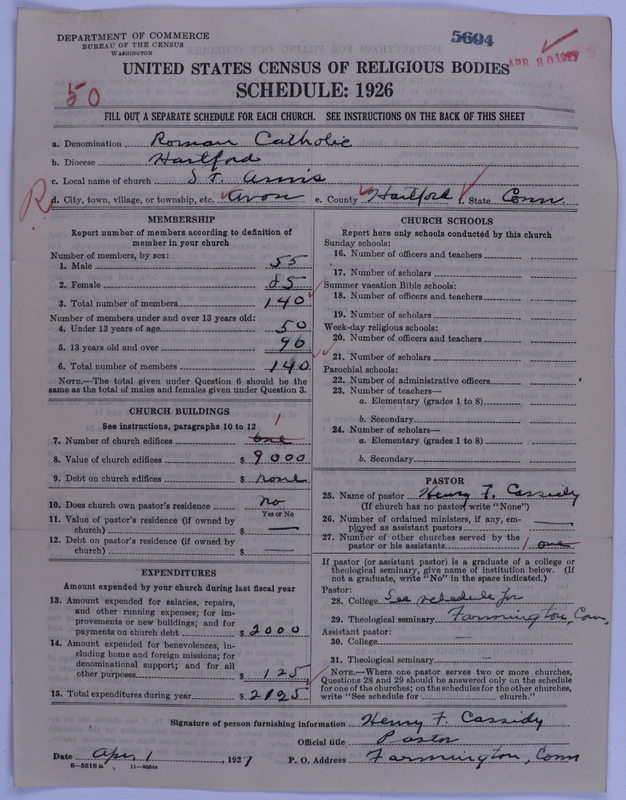 DEPARTMENT OF COMMERCE
BUREAU OF THE CENSUS
WASHINGTON
5604
APR 30 1927
UNITED STATES CENSUS OF RELIGIOUS BODIES
SCHEDULE: 1926
50
FILL OUT A SEPARATE SCHEDULE FOR EACH CHURCH. SEE INSTRUCTIONS ON THE BACK OF THIS SHEET
a. Denomination Roman Catholic
b. Diocese Hartford
c. Local name of church St. Anns
R
d. City, town, village, or township, etc. Avon e. County Hartford f. State Conn.
MEMBERSHIP
Report number of members according to definition of
member in your church
Number of members, by sex:
1. Male 55
2. Female 85
3. Total number of members 140
Number of members under and over 13 years old:
4. Under 13 years of age 50
5. 13 years old and over 90
6. Total number of members 140
NOTE.—The total given under Question 6 should be the
same as the total of males and females given under Question 3.
CHURCH BUILDINGS
See instructions, paragraphs 10 to 12
7. Number of church edifices one 1
8. Value of church edifices $ 9000
9. Debt on church edifices $ none
10. Does church own pastor's residence No
Yes or No
11. Value of pastor's residence (if owned by
church) $
12. Debt on pastor's residence (if owned by
church) $
EXPENDITURES
Amount expended by your church during last fiscal year
13. Amount expended for salaries, repairs,
and other running expenses; for im-
provements or new buildings; and for
payments on church debt $ 2000
14. Amount expended for benevolences, in-
cluding home and foreign missions; for
denominational support; and for all
other purposes $ 125
15. Total expenditures during year $ 2125
CHURCH SCHOOLS
Report here only schools conducted by this church
Sunday schools:
16. Number of officers and teachers
17. Number of scholars
Summer vacation Bible schools:
18. Number of officers and teachers
19. Number of scholars
Week-day religious schools:
20. Number of officers and teachers
21. Number of scholars
Parochial schools:
22. Number of administrative officers
23. Number of teachers—
a. Elementary (grades 1 to 8)
b. Secondary
24. Number of scholars—
a. Elementary (grades 1 to 8)
b. Secondary
PASTOR
25. Name of pastor Henry F. Cassidy
(If church has no pastor, write "None")
26. Number of ordained ministers, if any, em-
ployed as assistant pastors
27. Number of other churches served by the
pastor or his assistants 1 one
If pastor (or assistant pastor) is a graduate of a college or
theological seminary, give name of institution below. (If
not a graduate, write "No" in the space indicated.)
Pastor:
28. College See schedule for
29. Theological seminary Farmington, Conn.
Assistant pastor:
30. College
31. Theological seminary
NOTE.—Where one pastor serves two or more churches,
Questions 28 and 29 should be answered only on the schedule
for one of the churches; on the schedules for the other churches,
write "See schedule for church."
Signature of person furnishing information Henry F. Cassidy
Official title Pastor
Date Apr. 1, 1927 P. O. Address Farmington, Conn
8—5518 a